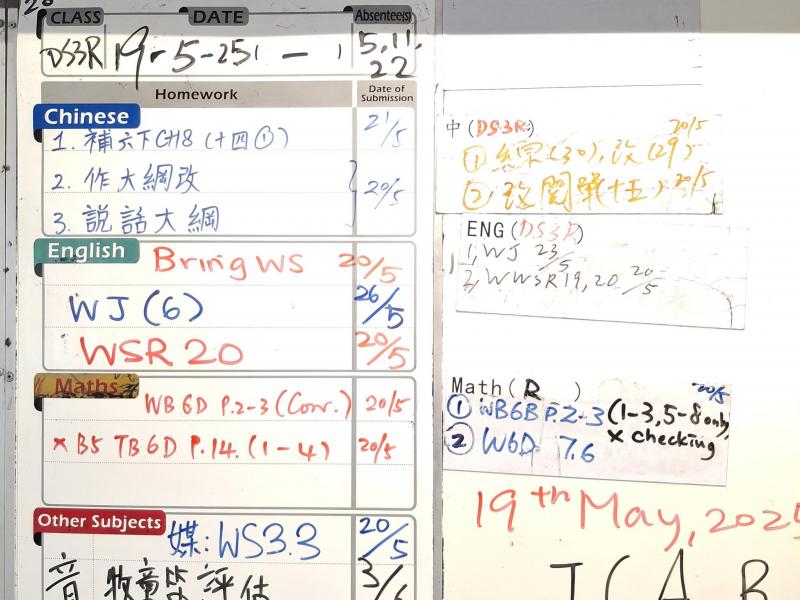 CLASS DATE Absentee(s)
DS3R 19-5-25 5, 11,
22
Homework Date of Submission
Chinese
1. 補六下CH8 (十四①) 21/5
2. 作大綱改 20/5
3. 説話大綱
English Bring WS 20/5
WJ (6) 26/5
WSR 20 20/5
Maths
WB 6D P.2-3 (Corr.) 20/5
× B5 TB 6D P.14. (1-4) 20/5
Other Subjects 媒: WS3.3 20/5
音 牧童笛評估 3/6
中 (DS3R) 20/5
① (30), 改 (29)
② 改 20/5
ENG (DS3R)
1, WJ 23/5
2, WWSR 19, 20 20/5
Math (R ) 20/5
① WB6B P.2-3 (1-3, 5-8 only)
× checking
② W6D 7.6
19th May, 2025